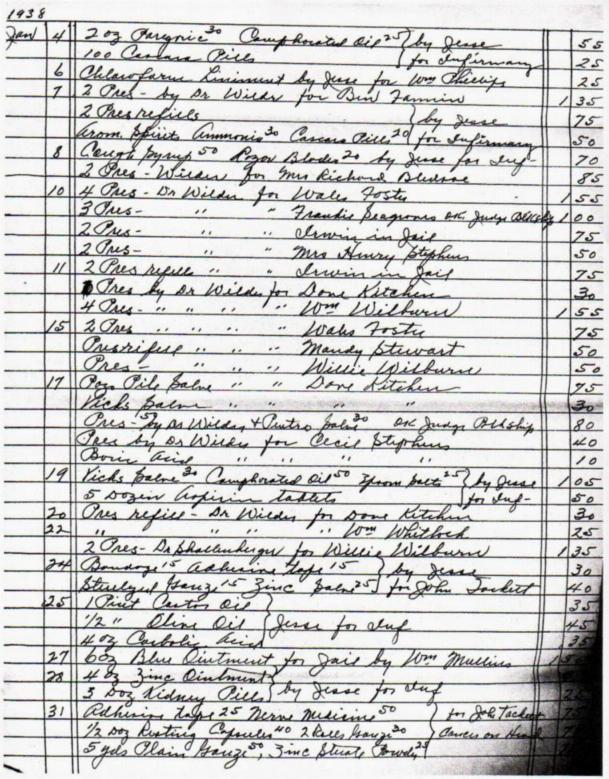 1938
Jan 4 2 oz Paregoric 30 Camphorated Oil 25 } by Jesse 55
100 Cascara Pills for Infirmary 25
6 Chloroform Liniment by Jesse for Wm Phillips 25
7 2 Pres - by Dr Wilder for Ben Fannin 1 35
2 Pres refills } by Jesse 75
Arom. Spirits Ammonia 30 Cascara Pills 20 for Infirmary 50
8 Cough Syrup 50 Razor Blades 20 by Jesse for Inf- 70
2 Pres - Wilder for Mrs Richard Bledsoe 85
10 4 Pres - Dr Wilder for Wales Foster 1 55
3 Pres- " " " Frankie Seagraves OK Judge Blkshp 1 00
2 Pres- " " " Irwin in Jail 75
2 Pres- " " " Mrs Henry Stephens 50
11 2 Pres refills " " " Irwin in Jail 75
Pres by Dr Wilder for Dave Kitchen 30
4 Pres- " " " " Wm Wilburn 1 55
15 2 Pres " " " Wales Foster 75
Pres refill " " " Mandy Stewart 50
Pres- " " " Willie Wilburn 50
17 Pazo Pile Salve " " Dave Kitchen 75
Vicks Salve " " " " 30
Pres- 50 by Dr Wilder + Salve 30 OK Judge Blkship 80
Pres by Dr Wilder for Cecil Stephens 40
Boric Acid " " " " " 10
19 Vicks Salve 30 Camphorated Oil 50 Epsom Salts 25 } by Jesse 1 05
5 Dozen Aspirin tablets for Inf- 50
20 Pres refill - Dr Wilder for Dave Kitchen 30
22 " " " " " Wm Whitlock 25
2 Pres- Dr Shallenberger for Willie Wilburn 1 35
24 Bandage 15 Adhesive tape 15 } by Jesse 30
Sterilized Gauze 15 Zinc Salve 25 for John Tackett 40
25 1 Pint Castor Oil 35
1/2 " Olive Oil } Jesse for Inf 45
4 oz Carbolic Acid 35
27 6 oz Blue Ointment for Jail by Wm Mullins 1
28 4 oz Zinc Ointment
3 Doz Kidney Pills } by Jesse for Inf
31 Adhesive tape 25 Nerve Medicine 50 } for John Tackett
1/2 Doz Resting Capsules 40 2 Rolls Gauze 30 Cancer on Hand
5 yds Plain Gauze 50, Zinc Powder 25